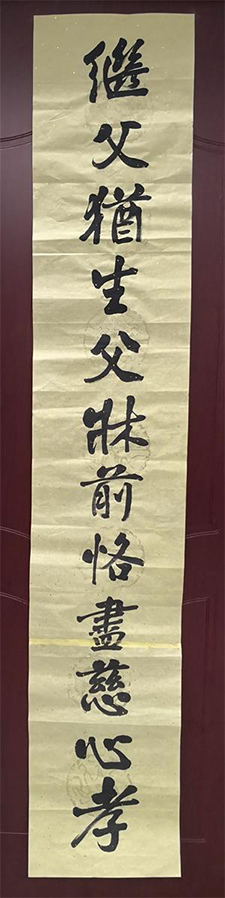 繼父猶生父牀前恪盡慈心孝